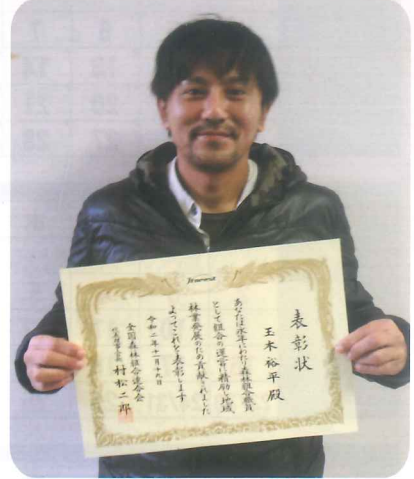 JForest
表彰状
玉木裕平殿
あなたは永年にわたり森林組合職員
として組合の運営に精励し地域
林業発展のため貢献されました
よってこれを表彰します
令和二年十一月十九日
全国森林組合連合会
代表理事会長 村松二郎